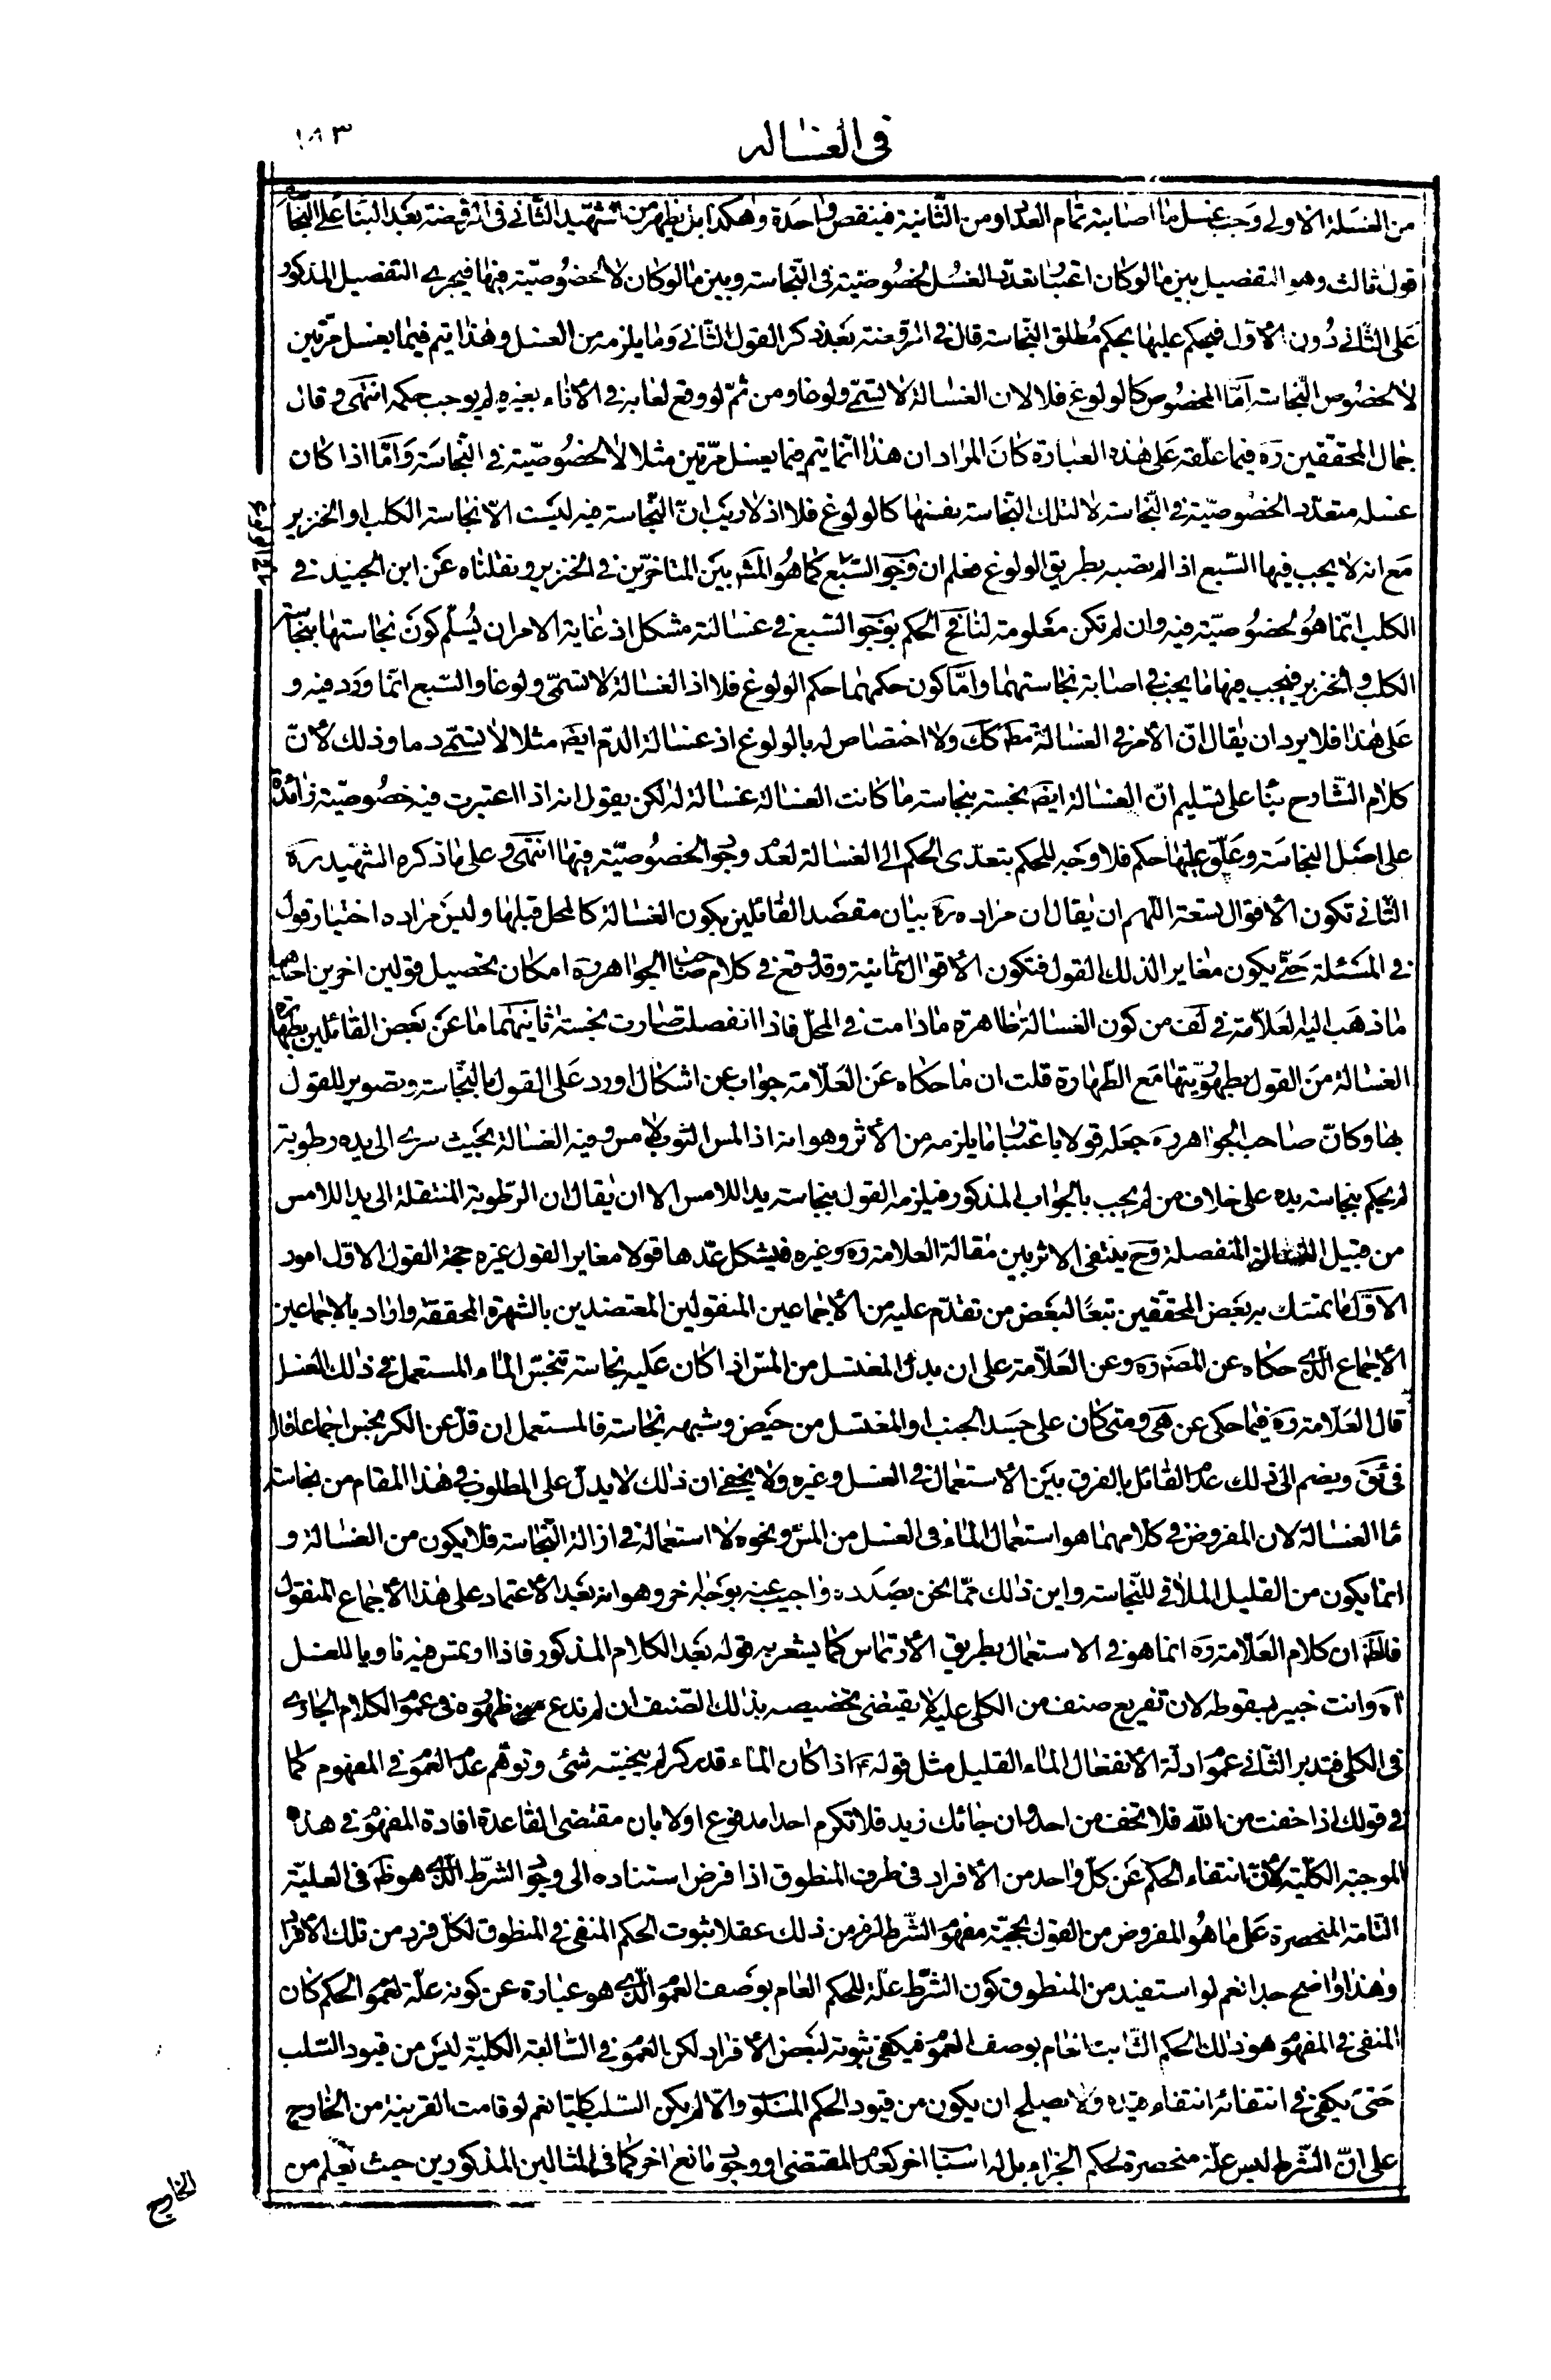 في الغسالة
١٨٣
من الغسلة الاولى وجب غسل ما اصابته تمام العدد او من الثانية فينقص واحدة وهكذا بل يظهر من الشهيد الثاني في الروضة بعد البناء على النجاسة
قول ثالث وهو التفصيل بين ما لو كان اعتبار تعدد الغسل لخصوصيّة في النّجاسة وبين ما لو كان لا لخصوصيّة فيها فيجري التفصيل المذكور
على الثّاني دون الأوّل فيحكم عليها بحكم مُطلق النّجاسة قال في الروضة بعد ذكر القول الثّاني وما يلزمه من الغسل وهذا يتم فيما يغسل مرّتين
لا لخصوص النّجاسة امّا المخصوص كالولوغ فلا لان الغسالة لا تسمّى ولوغا ومن ثمّ لو وقع لعابه في الأناء بغيره لم يوجب حكمه انتهى وقال
جمال المحققين ره فيما علّقه على هذه العبارة كان المراد ان هذا انّما يتم فيما يغسل مرّتين مثلا لا لخصوصيّة في النّجاسة وامّا اذا كان
غسله متعدّدا لخصوصيّة في النّجاسة لا لتلك النّجاسة بنفسها كالولوغ فلا اذ لا ريب انّ النّجاسة فيه ليست الّا نجاسة الكلب او الخنزير
مع انه لا يجب فيها السّبع اذا لم تصبه بطريق الولوغ فعلم ان وجوب السّبع كما هو المشهور بين المتاخّرين في الخنزير ونقلناه عن ابن الجنيد في
الكلب انّما هو لخصوصيّة فيه وان لم تكن معلومة لنا فح الحكم بوجوب السّبع في غسالته مشكل اذ غاية الامر ان يُسلّم كون نجاستها بنجاسة
الكلب والخنزير فيجب فيها ما يجب في اصابة نجاستهما وامّا كون حكمهما حكم الولوغ فلا اذ الغسالة لا تسمّى ولوغا والسّبع انّما ورد فيه و
على هذا فلا يرد ان يقال انّ الأمر في الغسالة مطلقا كك ولا اختصاص له بالولوغ اذ غسالة الدّم ايضا مثلا لا تسمّى دما وذلك لأنّ
كلام الشّارح بناء على تسليم انّ الغسالة ايضا نجسة بنجاسة ما كانت الغسالة غسالة له لكن يقول انه اذا اعتبرت فيه خصوصيّة زائدة
على اصل النجاسة وعلّق عليها حكم فلا وجه للحكم بتعدّى الحكم الى الغسالة لعدم وجود الخصوصيّة فيها انتهى وعلى ما ذكره الشهيد ره
الثّاني تكون الأقوال سبعة اللّهم ان يقال ان مراده ره بيان مقصد القائلين بكون الغسالة كالمحل قبلها وليس مراده اختيار قول
في المسئلة حتّى يكون مغايرا لذلك القول فتكون الأقوال ثمانية وقد وقع في كلام صاحب الجواهر ره امكان تحصيل قولين اخرين احدهما
ما ذهب اليه العلّامة في كف من كون الغسالة طاهرة ما دامت في المحلّ فاذا انفصلت صارت نجسة ثانيهما ما عن بعض القائلين بطهارة
الغسالة من القول بطهوريّتها مع الطّهارة قلت ان ما حكاه عن العلّامة جواب عن اشكال اورد على القول بالنّجاسة وتصوير للقول
بها وكانّ صاحب الجواهر ره جعله قولا باعتبار ما يلزمه من الأثر وهو انه اذا لمس الثوب لامس وفيه الغسالة بحيث سرى الى يده رطوبة
لم يحكم بنجاسة يده على خلاف من لم يجب بالجواب المذكور فيلزمه القول بنجاسة يد اللامس الا ان يقال ان الرّطوبة المنتقلة الى يد اللامس
من قبيل الغسالة المنفصلة وح ينتفى الاثر بين مقالة العلامة ره وغيره فيشكل عدّها قولا مغايرا لقول غيره حجة القول الاوّل امور
الاوّل ما تمسّك به بعض المحقّقين تبعًا لبعض من تقدّم عليه من الأجماعين المنقولين المعتضدين بالشهرة المحققة واراد بالاجماعين
الأجماع الّذي حكاه عن المصنّف ره وعن العلّامة على ان بدن المغتسل من المسّ اذا كان عليه نجاسة تنجّس الماء المستعمل في ذلك الغسل
قال العلّامة ره فيما حكى عن هى ومتى كان على جسد الجنب او المغتسل من حيض وشبهه نجاسة فالمستعمل ان قلّ عن الكر نجس اجماعا قال
في ئق ويضم الى ذلك عدم القائل بالفرق بين الأستعمال في الغسل وغيره ولا يخفى ان ذلك لا يدلّ على المطلوب في هذا المقام من نجاسة
ماء الغسالة لان المفروض في كلامهما هو استعمال الماء في الغسل من المسّ ونحوه لا استعماله في ازالة النّجاسة فلا يكون من الغسالة و
انما يكون من القليل الملاقي للنّجاسة واين ذلك ممّا نحن بصدده واجيب عنه بوجه اخر وهو انه بعد الأعتماد على هذا الأجماع المنقول
فالظّ ان كلام العلّامة ره انما هو في الاستعمال بطريق الأرتماس كما يشعر به قوله بعد الكلام المذكور فاذا ارتمس فيه ناويا للغسل
اه وانت خبير بسقوطه لان تفريع صنف من الكلى عليه لا يقتضى تخصيصه بذلك الصّنف ان لم ندع ظهوره في عموم الكلام الجارى
في الكلى فتدبر الثّاني عموم ادلّة الأنفعال الماء القليل مثل قوله ع اذا كان الماء قدر كر لم ينجسّه شئ وتوهّم عدم العموم في المفهوم كما
في قولك اذا خفت من الله فلا تخف من احد وان جائك زيد فلا تكرم احدا مدفوع اولا بان مقتضى القاعدة افادة المفهوم في هذه
الموجبة الكليّة لأنّ انتفاء الحكم عن كلّ واحد من الأفراد في طرف المنطوق اذا فرض استناده الى وجود الشّرط الّذي هو ظ في العليّة
التّامة المنحصرة على ما هو المفروض من القول بحجيّة مفهوم الشّرط لزم من ذلك عقلا ثبوت الحكم المنفى في المنطوق لكلّ فرد من تلك الأفراد
وهذا واضح جدا نعم لو استفيد من المنطوق كون الشّرط علّة للحكم العام بوصف العموم الّذي هو عبارة عن كونه علّة لعموم الحكم كان
المنفى في المفهوم هو ذلك الحكم الثّابت العام بوصف العموم فيكفى ثبوته لبعض الأفراد لكن العموم في السّالبة الكليّة ليس من قيود السّلب
حتى يكفى في انتفائه انتفاء قيده ولا يصلح ان يكون من قيود الحكم المسلوب والّا لم يكن السّلب كليّا نعم لو قامت القرينة من الخارج
على انّ الشّرط ليس علّة منحصرة لحكم الجزاء بل له اسباب اخر كعدم المقتضى او وجود مانع اخر كما في المثالين المذكورين حيث تعلم من
الخارج